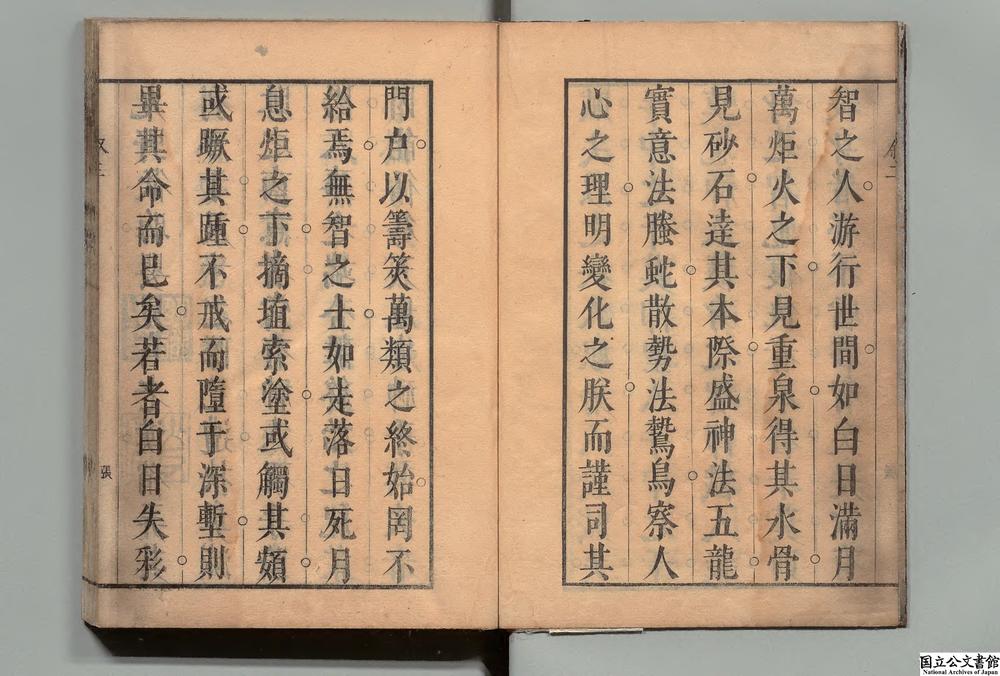 智之人游行世間如白日滿月
萬炬火之下見重泉得其水骨
見砂石逹其本際盛神法五龍
實意法螣蛇散勢法鷙鳥察人
心之理明變化之朕而謹司其
門户以籌筴萬類之終始罔不
給焉無智之士如走落日死月
息炬之下摘埴索塗或觸其頞
或蹶其踵不戒而墮于深塹則
畢其命而已矣若者白日失彩
張
国立公文書館
National Archives of Japan